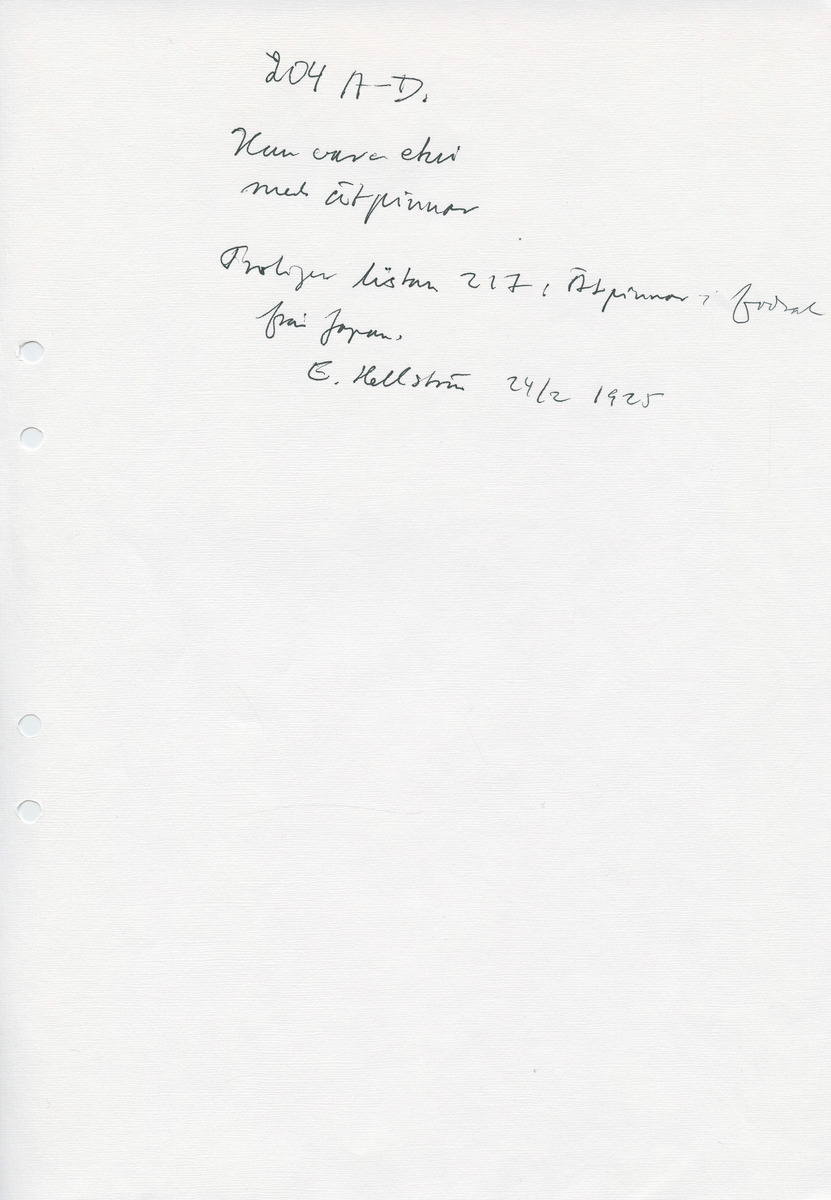 204 A-D.
Kan vara etui
med ätpinnar
Troligen listan 217, Ätpinnar i fodral
från Japan.
E. Hellström 24/2 1925